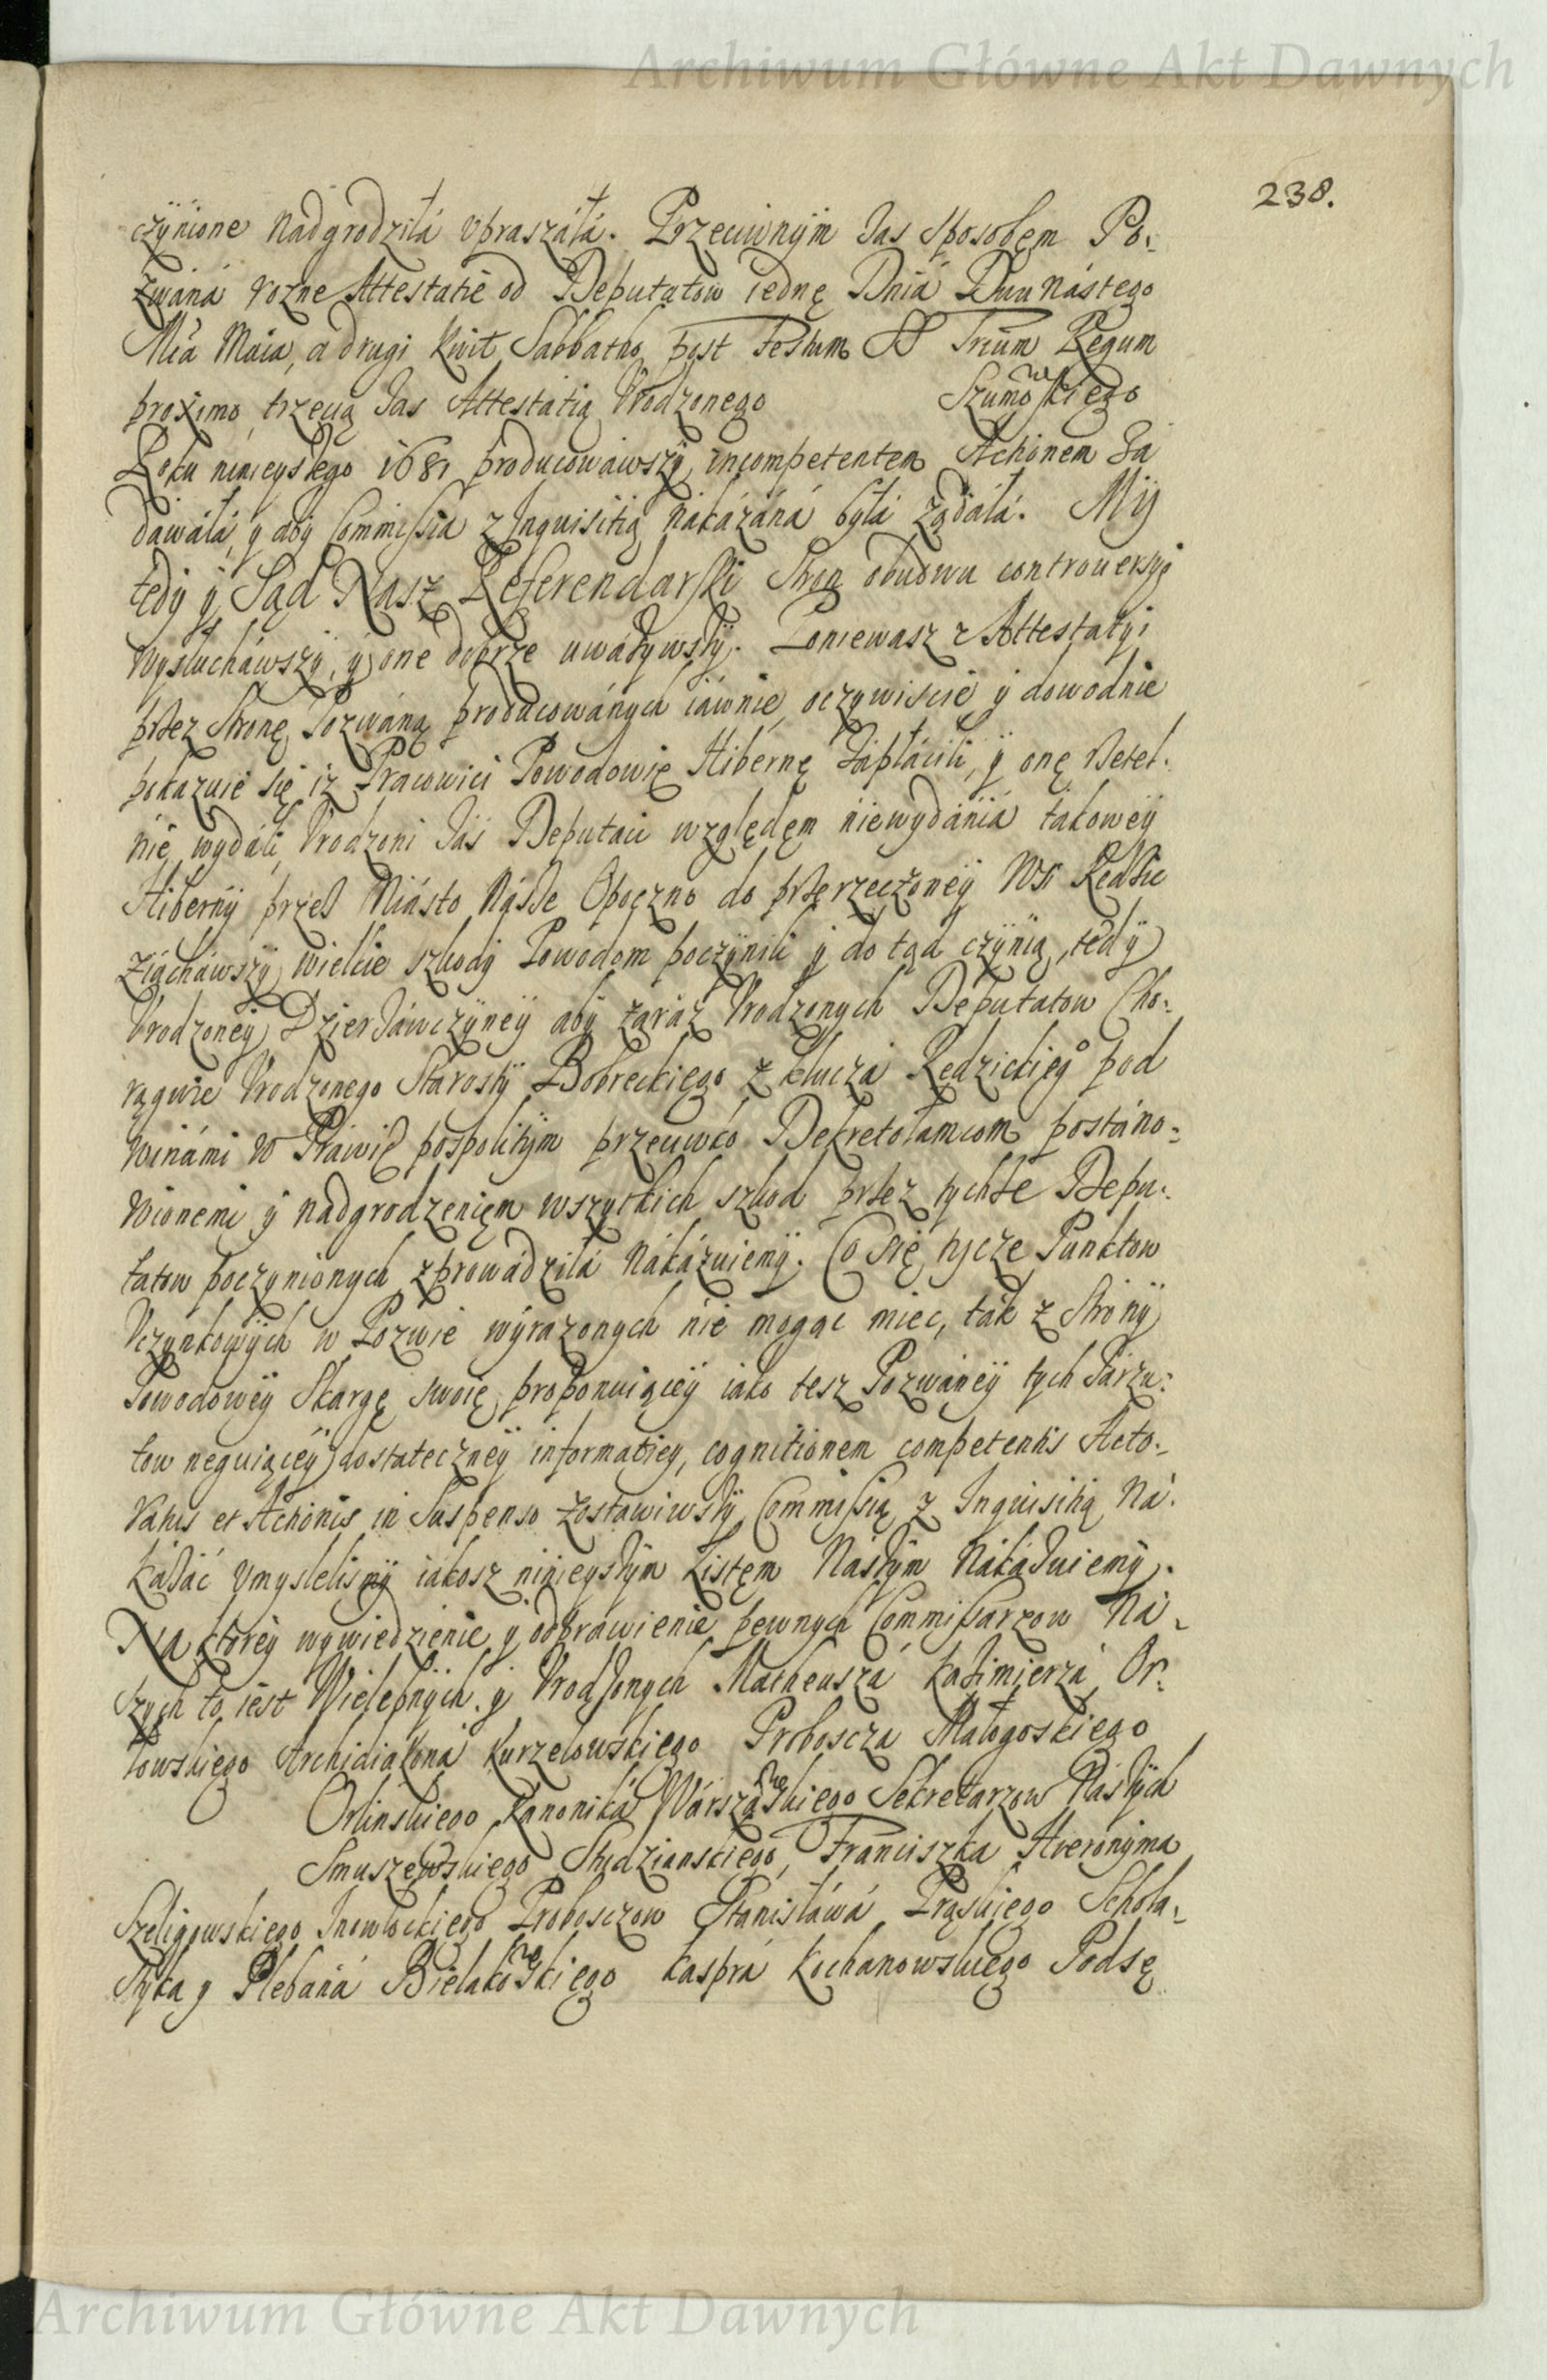 Archiwum Główne Akt Dawnych
238.
czÿnione nadgrodziłá vpraszáłá. Przeciwnÿm zas sposobęm Po:
zwáná rozne Attestatie od Deputatow iednę Dniá Dwunástego
Mcá Máia, a drugi kwit Sabbatho post Festum SS Trium Regum
proximo, trzecią zas Attestátią Vrodzonego Szumowskięgo
Roku ninieyszego 1681 producowáwszÿ, incompetentem Actionem Za
dawáłá, y abÿ Commissia z Inquisitią nákázáná bÿłá żądáłá. Mÿ
tedÿ ÿ Sąd Nasz Referendarski Stron obudwu controuersye
wysłucháwszÿ, ÿ one dobrze uwázÿwszÿ. Poniewasz z Attestatÿi
przez Stronę Pozwáną producowánych iáwnie, oczywiscie ÿ dowodnie
pokazuie się iz Pracowici Powodowie Hibernę záptácili, ÿ onę rzetel-
nie wydáli, Vrodzeni zás Deputaci względęm niewydániá tákoweÿ
Hibernÿ przez Miásto Násze Opoczno do przerzeczoneÿ Wsi Kędzic
ziácháwszÿ wielkie szkodÿ Powodom poczÿnili ÿ do tąd czÿnią, tedÿ
Vrodzoneÿ Dzierzáwczÿneÿ abÿ záráz Vrodzonych Deputatow Cho:
rągwie Vrodzonego Starostÿ Bobreckiego z kluczá Kędzickięgo pod
winámi w Práwie pospolitÿm przeciwko Dekretołamcom postáno=
wionemi ÿ nadgrodzenięm wszytkich szkod przez tychze Depu:
tatow poczynionych zprowádziłá nákázuiemÿ. Co się tycze Punctow
Vczynkowÿch w Pozwie wÿrazonych nie mogąc miec, ták z Stronÿ
Powodoweÿ Skargę swoię proponuiąceÿ iako tesz Pozwáneÿ tych Zárzu:
tow neguiąceÿ dostateczneÿ informatiey, cognitionem competentis Acto-
ratus et Actionis in Suspenso zostawiwszÿ Commissią z Inquisitią Ná-
kázáć vmyslelismÿ iákosz ninieyszÿm Listęm Nászÿm Nákázuiemÿ.
Na ktoreÿ wywiedzienie ÿ odprawienie pewnych Commissarzow Ná-
szych to iest Wielebnÿch ÿ Vrodzonych Matheuszá Kazimierzá Or:
łowskiego Archidiakoná Kurzelowskiego Proboscza Małogoskiego
Orlinskiego Kanoniká Wárszawskiego Sekretarzow Nászÿch
Smuszewskiego Studzianskiego, Franciszka Hieronÿma
Szeligowskiego Inowłockiego Proboszczow Stanisłáwá Prąskiego Schola-
styka y Plebaná Bielakowskięgo Kasprá Kochanowskiego Podsę
Archiwum Główne Akt Dawnych